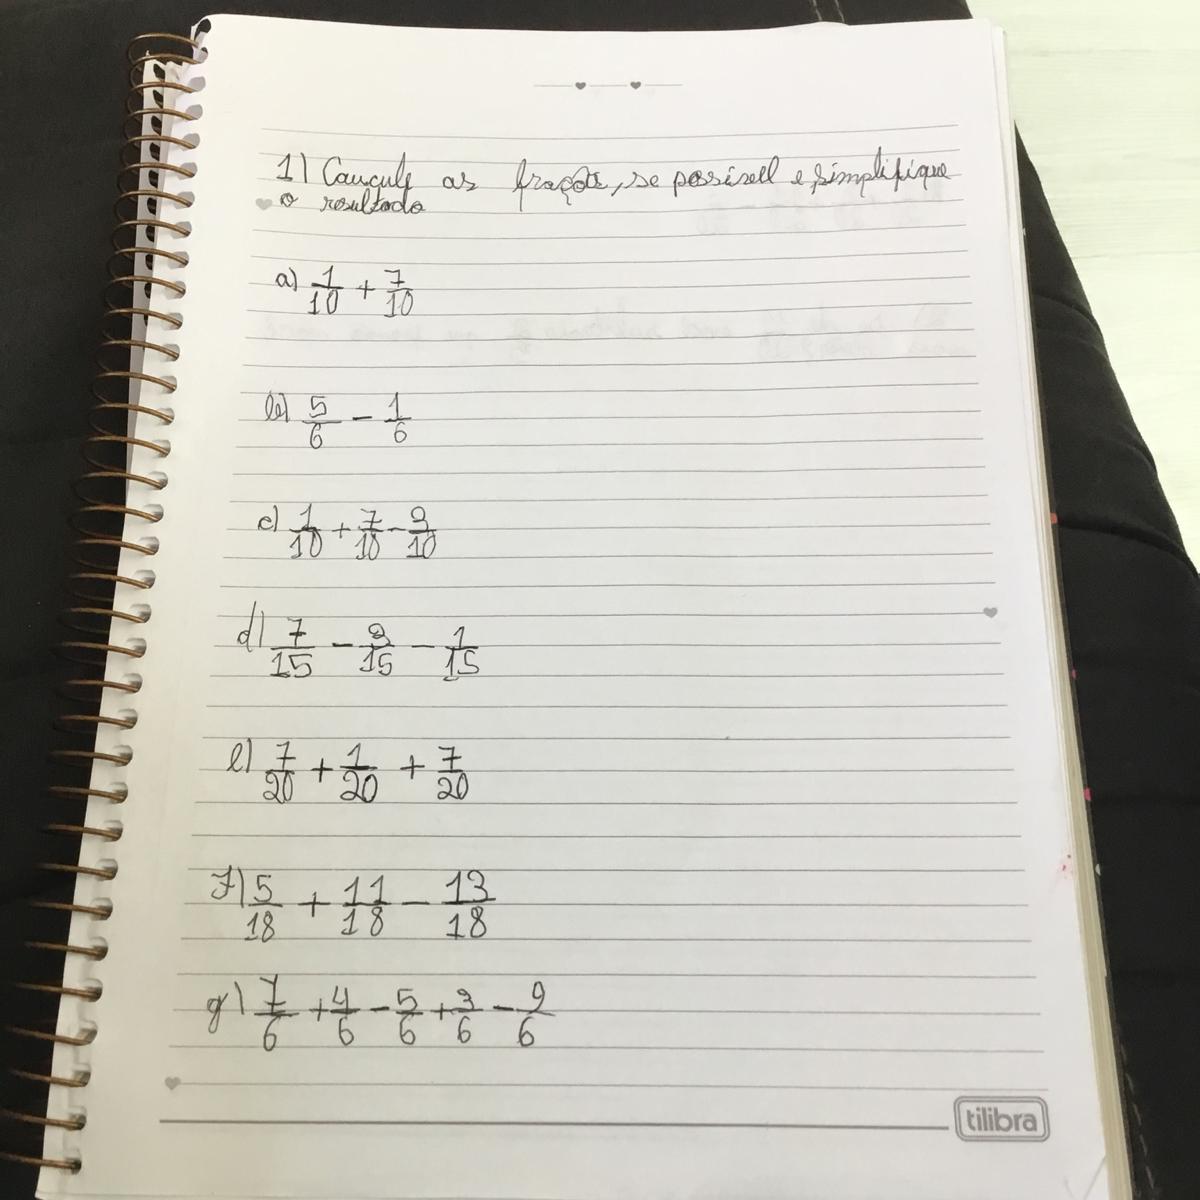 1) Caucule as fraçoẽs, se possivell e simplifique
o resultado
a) 1/10 + 7/10
b) 5/6 - 1/6
c) 1/10 + 7/10 - 3/10
d) 7/15 - 3/15 - 1/15
e) 7/20 + 1/20 + 7/20
f) 5/18 + 11/18 - 13/18
g) 7/6 + 4/6 - 5/6 + 3/6 - 9/6
tilibra